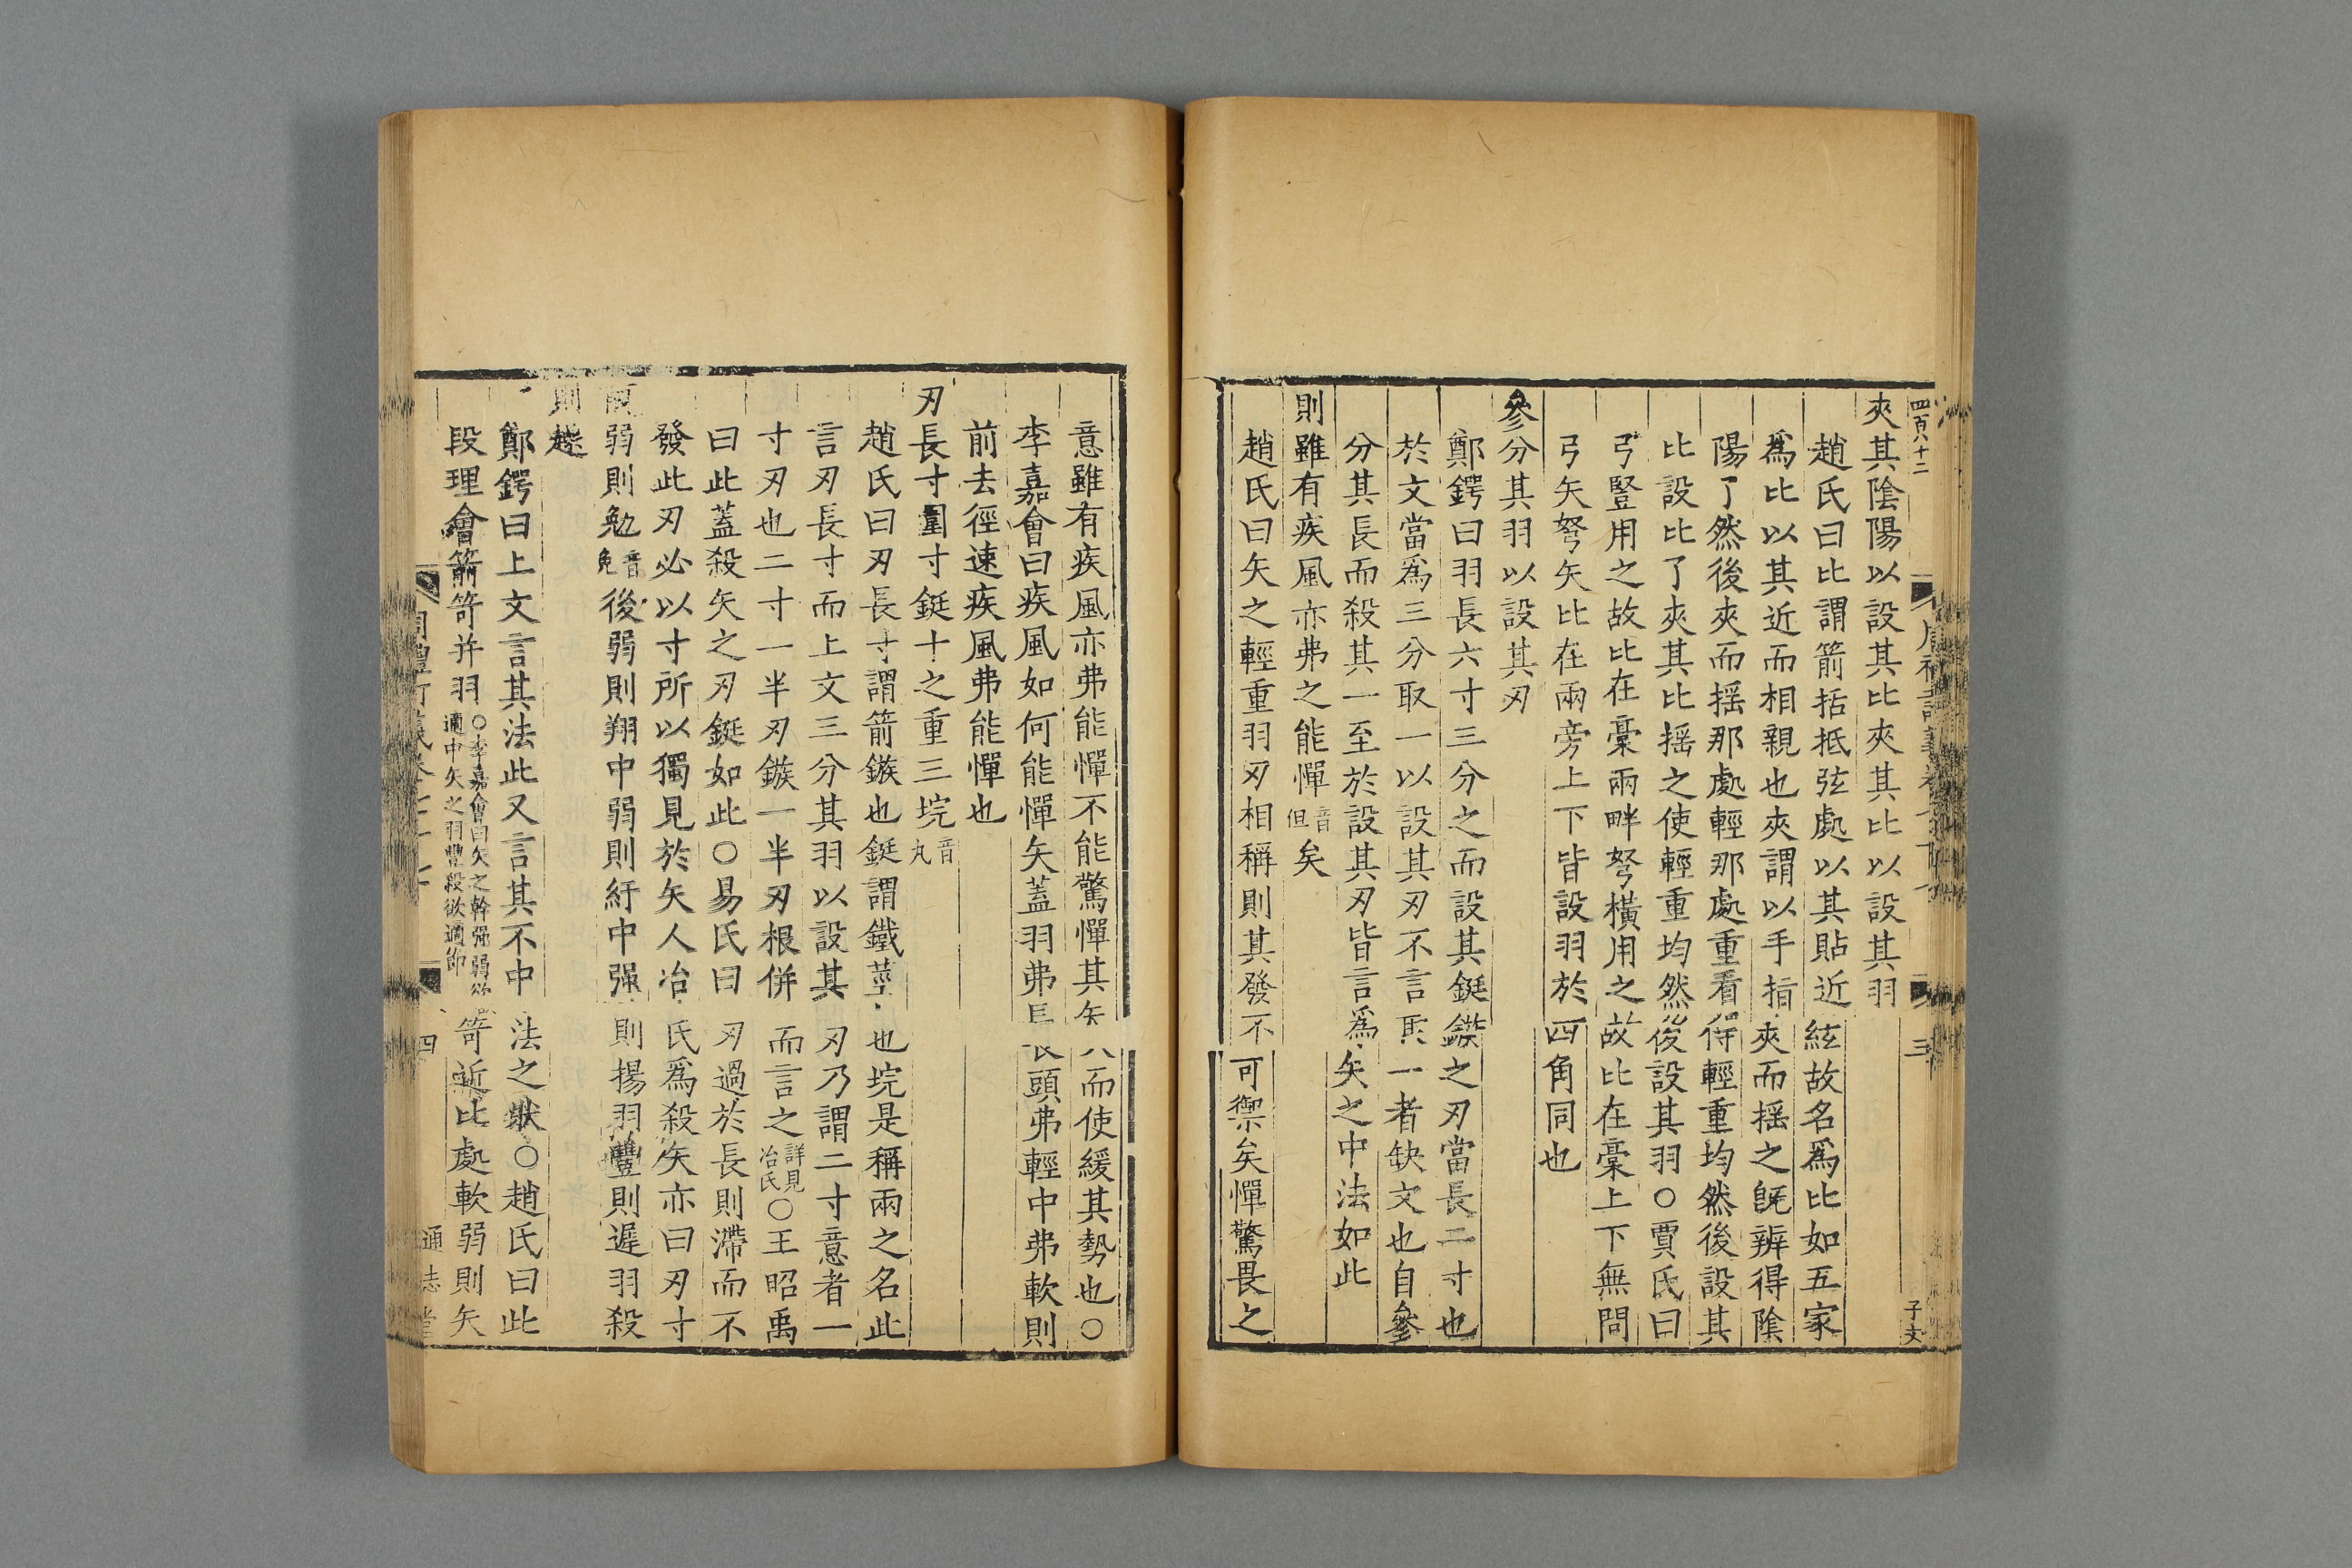 四百八十二
三
子文
夾其陰陽以設其比夾其比以設其羽
趙氏曰比謂箭括抵弦處以其貼近絃故名爲比如五家
爲比以其近而相親也夾謂以手指夾而揺之旣辨得陰
陽了然後夾而揺那處輕那處重看得輕重均然後設其
比設比了夾其比揺之使輕重均然後設其羽○賈氏曰
弓豎用之故比在槀兩畔弩橫用之故比在槀上下無問
弓矢弩矢比在兩旁上下皆設羽於四角同也
參分其羽以設其刃
鄭鍔曰羽長六寸三分之而設其鋌鏃之刃當長二寸也
於文當爲三分取一以設其刃不言其一者缺文也自參
分其長而殺其一至於設其刃皆言爲矢之中法如此
則雖有疾風亦弗之能憚音但矣
趙氏曰矢之輕重羽刃相稱則其發不可禦矣憚驚畏之
意雖有疾風亦弗能憚不能驚憚其矢而使緩其勢也○
李嘉會曰疾風如何能憚矢蓋羽弗長頭弗輕中弗軟則
前去徑速疾風弗能憚也
刃長寸圍寸鋌十之重三垸音丸
趙氏曰刃長寸謂箭鏃也鋌謂鐵莖也垸是稱兩之名此
言刃長寸而上文三分其羽以設其刃乃謂二寸意者一
寸刃也二寸一半刃鏃一半刃根併而言之詳見冶氏○王昭禹
曰此蓋殺矢之刃鋌如此○易氏曰刃過於長則滯而不
發此刃必以寸所以獨見於矢人冶氏爲殺矢亦曰刃寸
弱則勉音免後弱則翔中弱則紆中强則揚羽豐則遲羽殺
則趮
鄭鍔曰上文言其法此又言其不中法之狀○趙氏曰此
段理會箭笴并羽○李嘉會曰矢之幹强弱欲適中矢之羽豐殺欲適節笴近比處軟弱則矢
四
通志堂